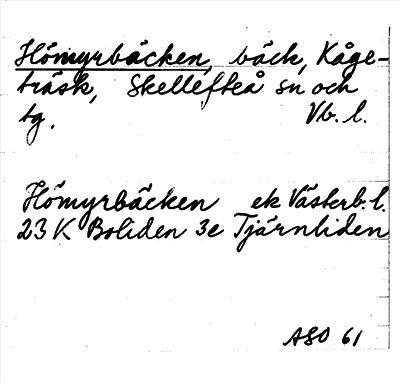 Hömyrbäcken, bäck, Kåge-
träsk, Skellefteå sn och
tg. Vb. l.
Hömyrbäcken ek Västerb. l.
23 K Boliden 3e Tjärnliden
ASO 61